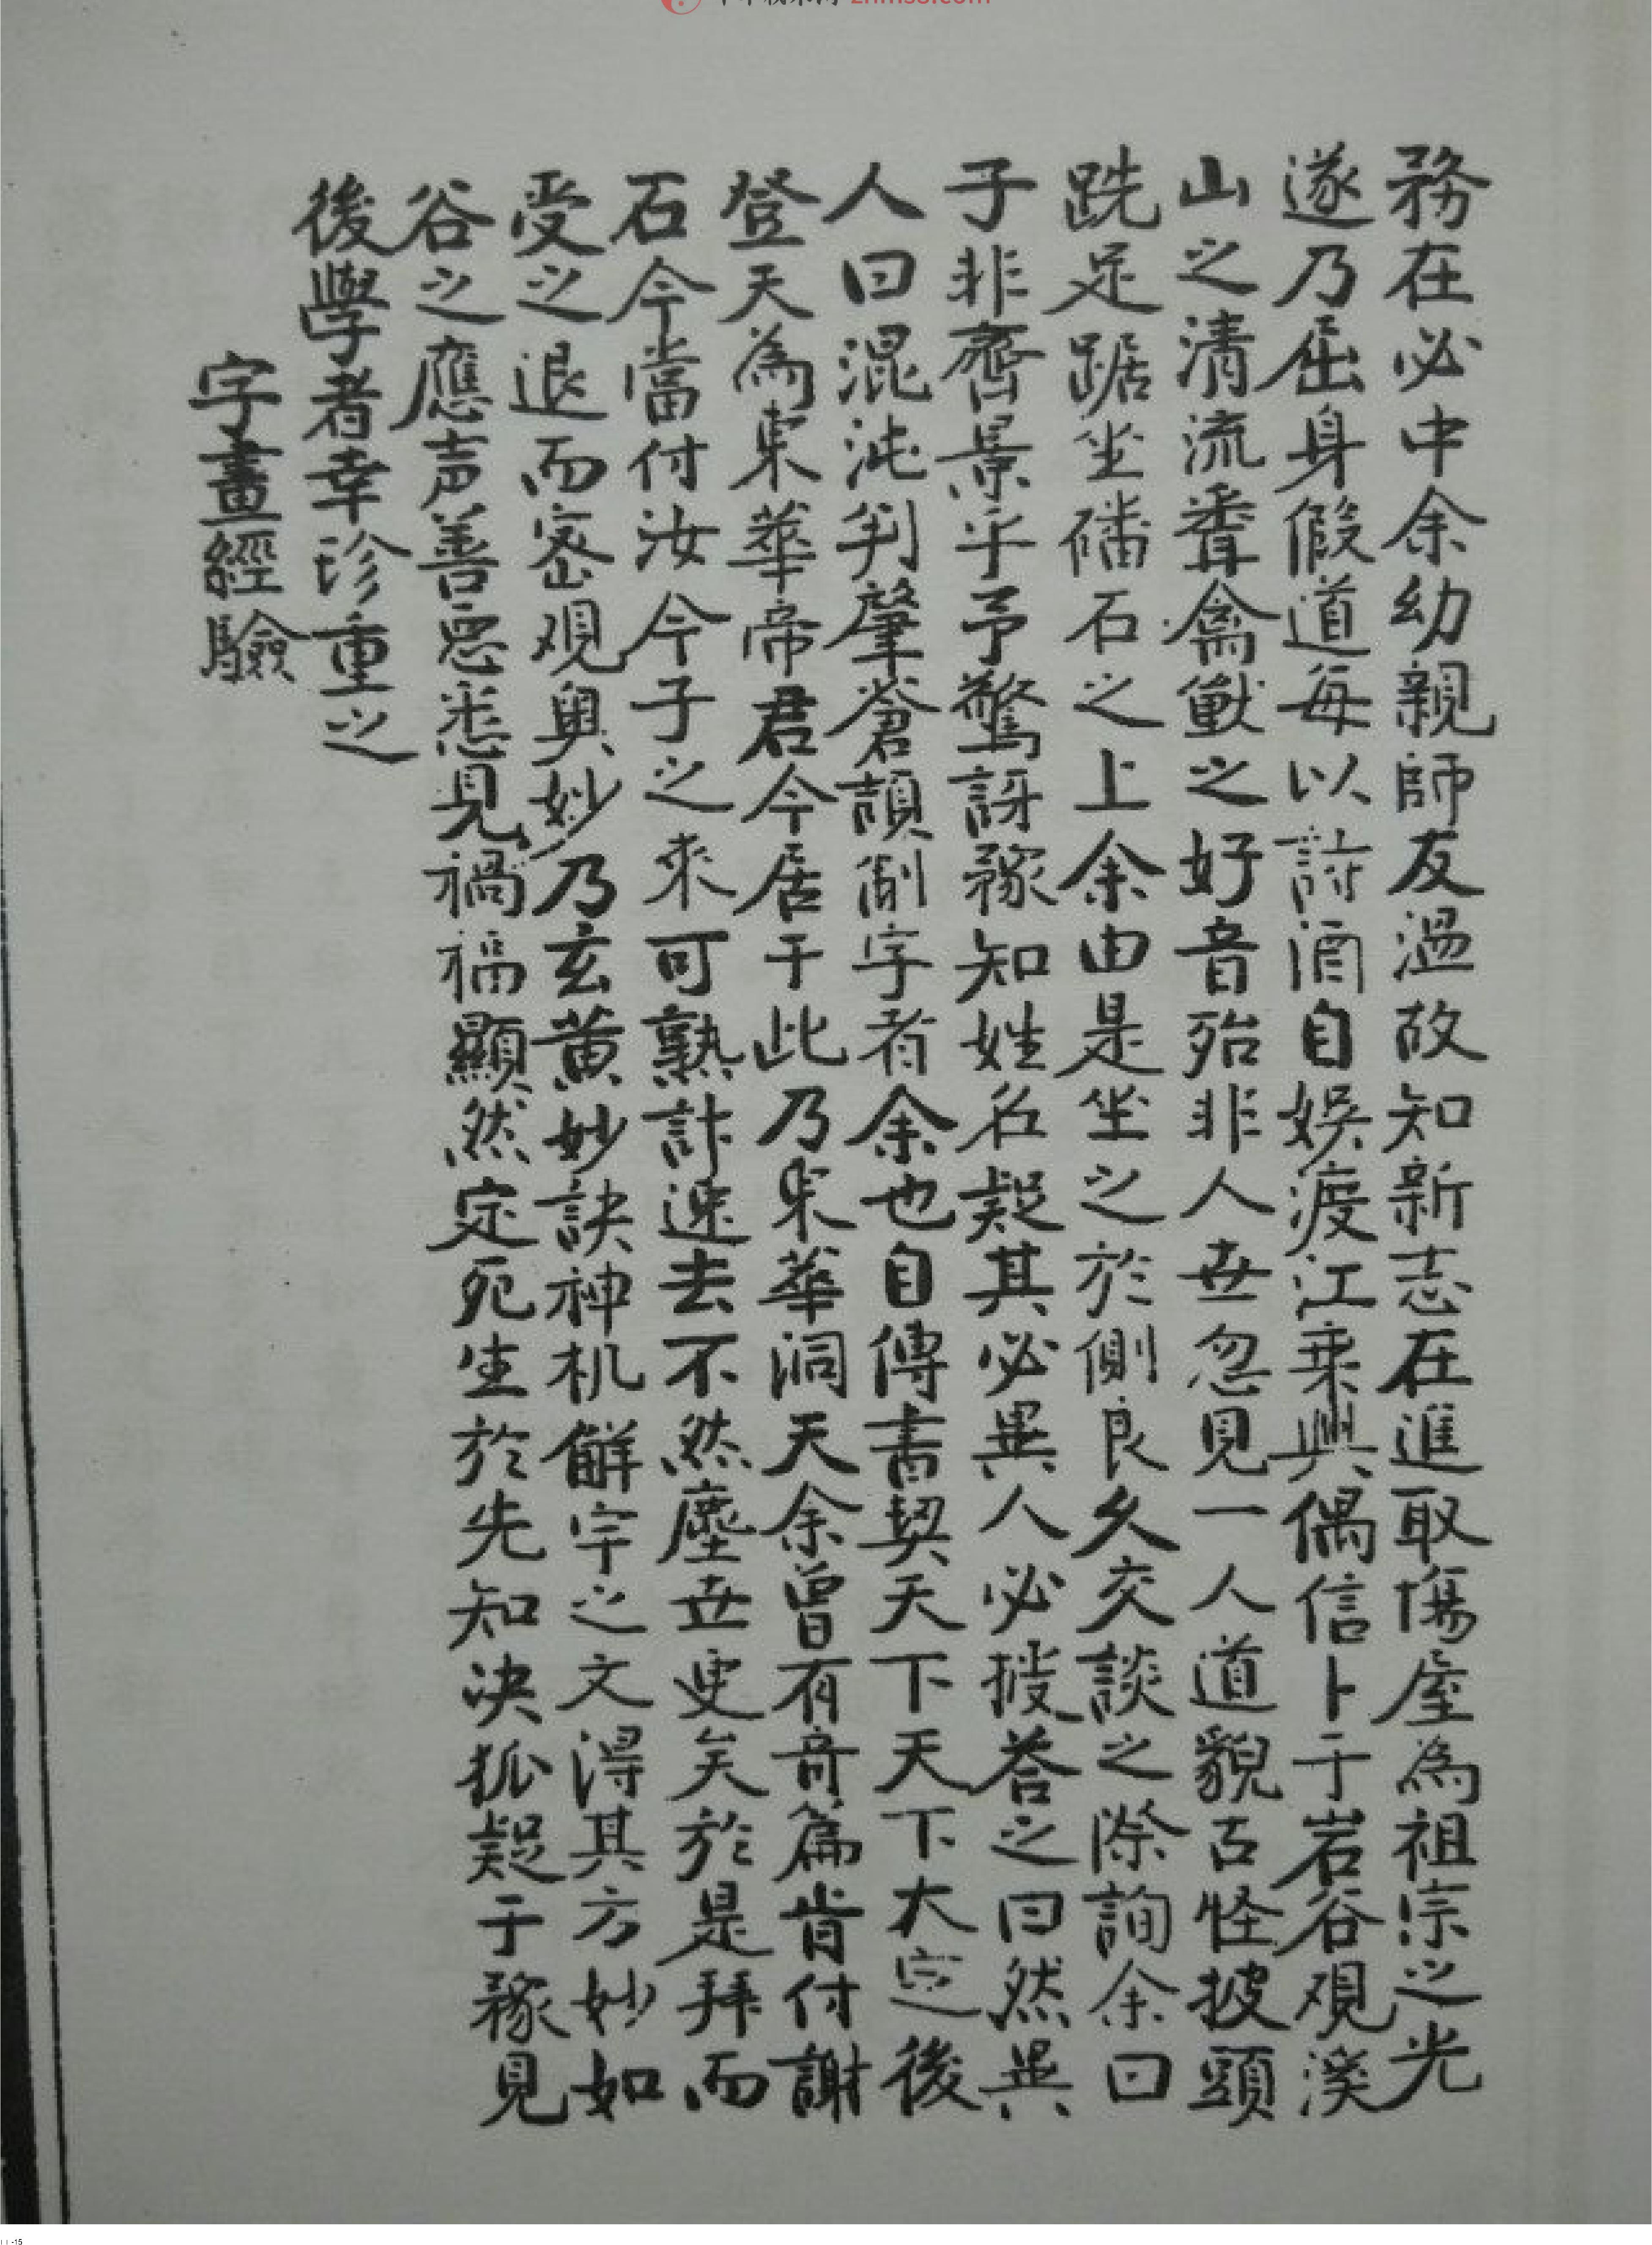 務在必中余幼親師友溫故知新志在進取傷屋為祖宗之光
遂乃屈身假道每以詩酒自娱渡江乘興偶信卜于岩谷观溪
山之清流聽禽獸之好音殆非人世忽見一人道貌古怪披頭
跣足踞坐磻石之上余由是坐之於側良久交談之際詢余曰
子非齊景乎予驚訝豫知姓名疑其必異人必授答之曰然異
人曰混沌判肇蒼頡制字者余也自傳書契天下天下大定後
登天為東華帝君今居于此乃東華洞天余曾有奇篇肯付謝
石今當付汝今子之來可熟計速去不然塵世更矣於是拜而
受之退而密观奥妙乃玄黄妙訣神机解字之文得其方妙如
谷之應声善恶悉見禍福顯然定死生於先知决狐疑于豫見
後學者幸珍重之
字畫經驗
znms8.com
-15